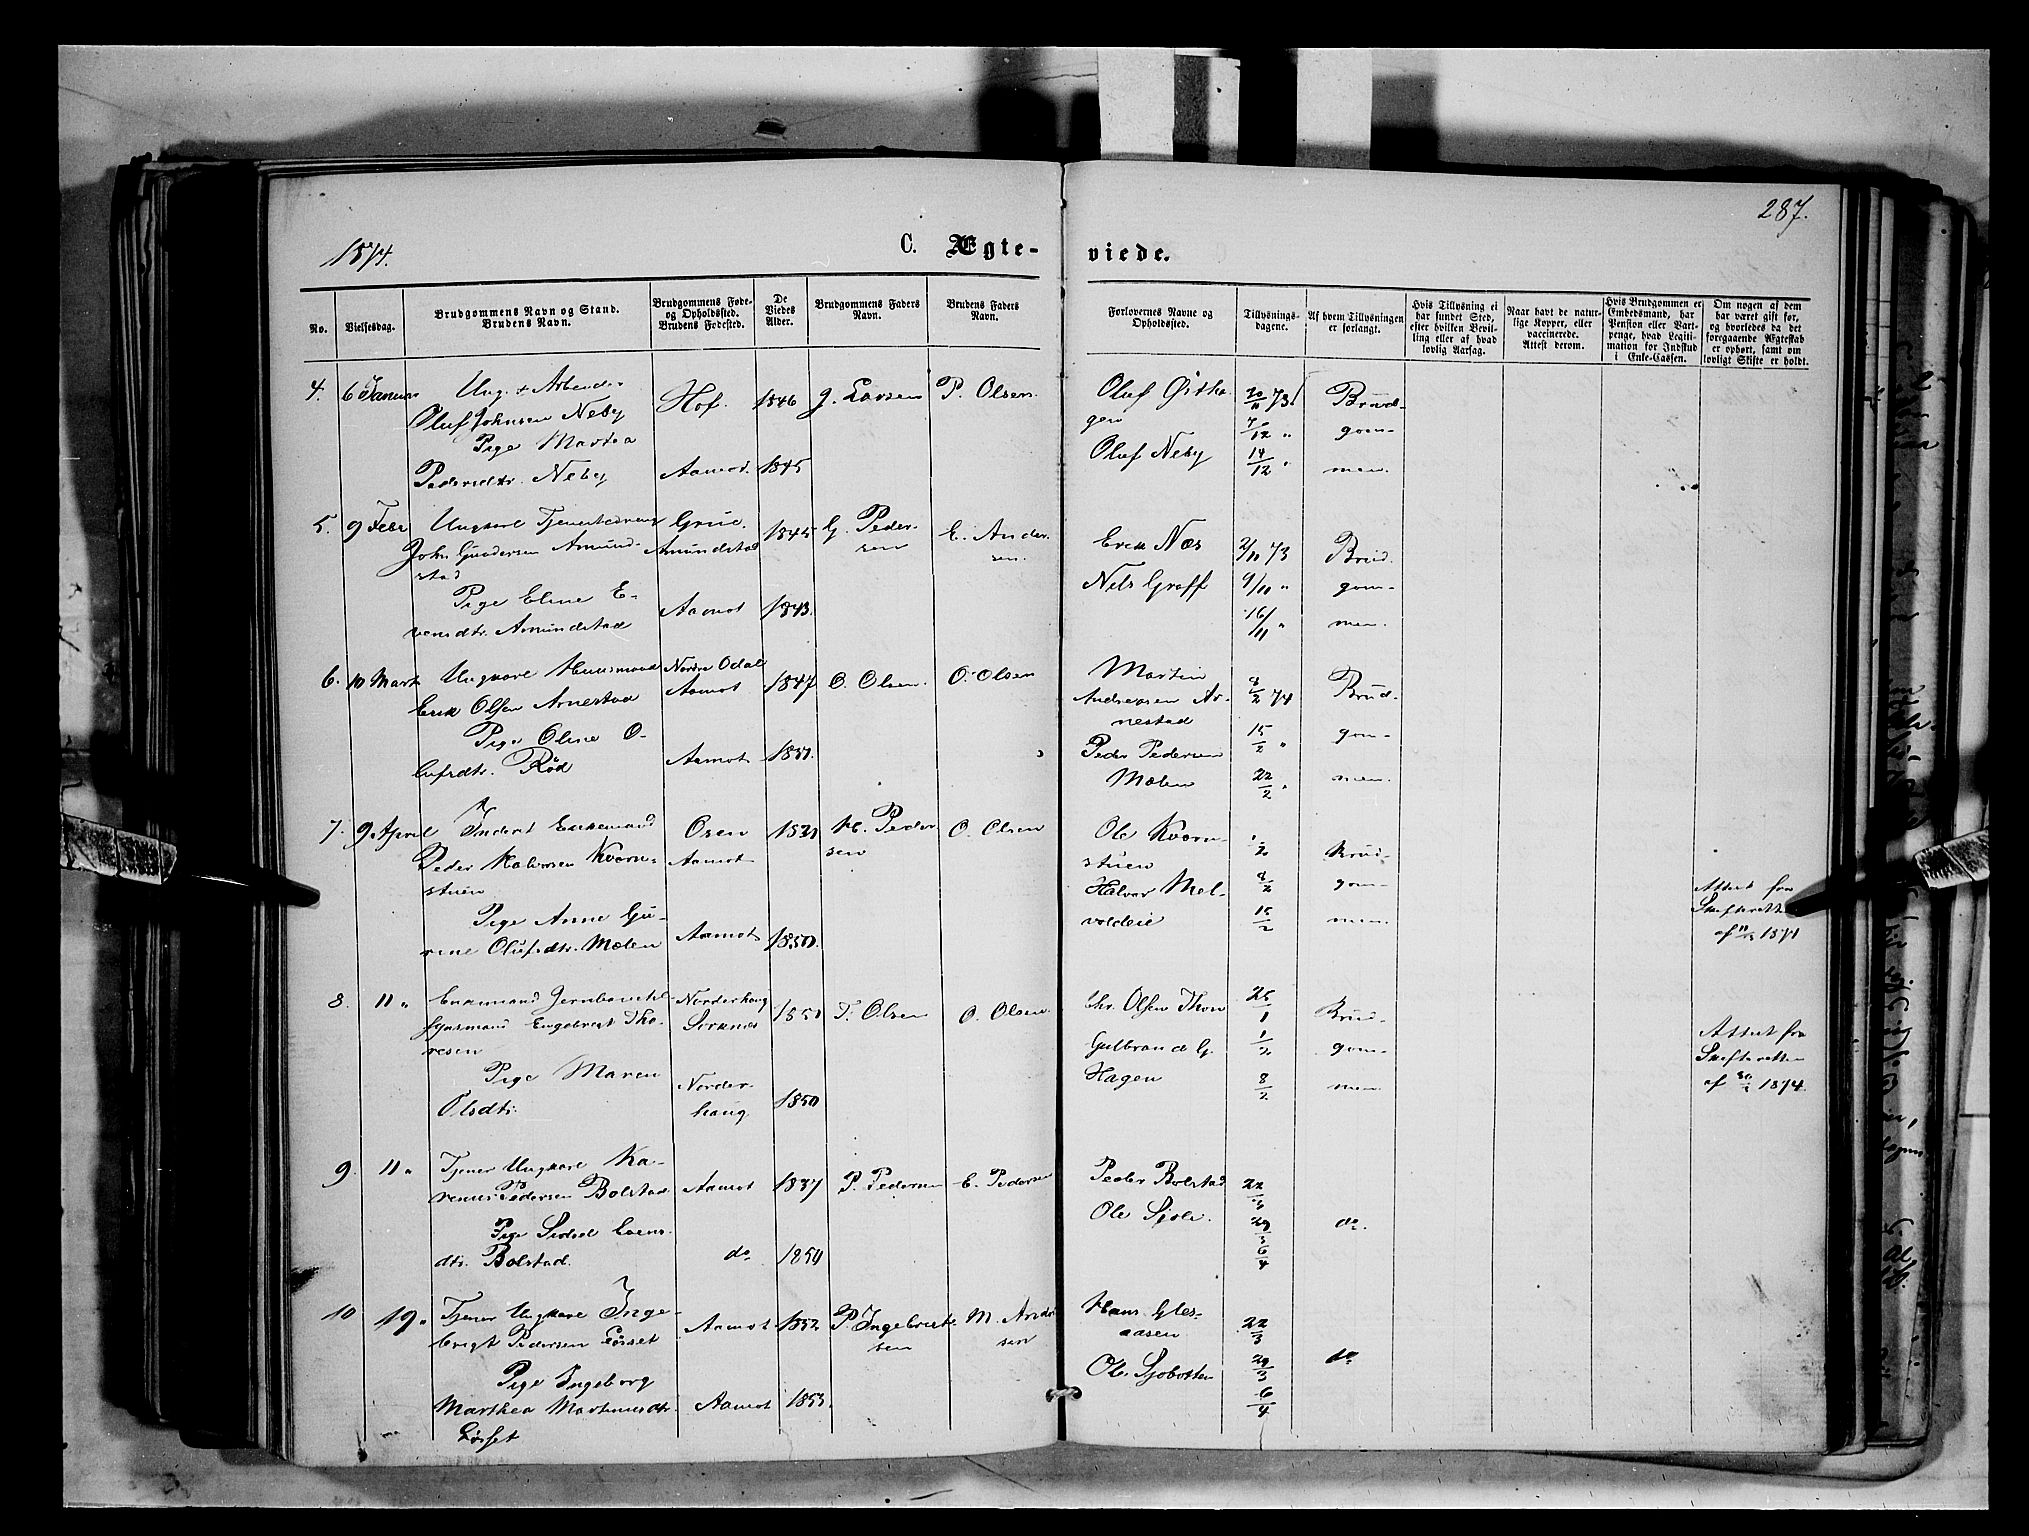 287.
1874.
C. Ægte-
viede.
No.
Vielsesdag.
Brudgommens Navn og Stand.
Brudens Navn.
Brudgommens Føde-
og Opholdssted.
Brudens Fødested.
De
Viedes
Alder.
Brudgommens Faders
Navn.
Brudens Faders
Navn.
Forlovernes Navne og
Opholdssted.
Tillysnings-
dagene.
Af hvem Tillysningen
er forlangt.
Hvis Tillysning ei
har fundet Sted,
efter hvilken Bevil-
ling eller af hvad
lovlig Aarsag.
Naar havt de natur-
lige Kopper, eller
vaccinerede.
Attest derom.
Hvis Brudgommen er
Embedsmand, har
Pension eller Vart-
penge, hvad Legiti-
mation for Indskud
i Enke-Cassen.
Om nogen af dem
har været gift før,
og hvorledes da det
foregaaende Ægteskab
er ophørt, samt om
lovligt Skifte er holdt.
4. 6 Januar
Oluf Johnsen Neby
Pige Martea
Pedersdtr. Neby
Hof.
Aamot.
1846
1845
J. Larsen
P. Olsen.
Oluf
gen
Oluf Neby
20/11 73
7/12 "
14/12 "
Brud-
gom-
men.
5. 9 Febr
Ungkarl
John Gundersen Amund-
stad
Pige Eline E-
vensdtr. Amundstad
Grue.
Amundstad
Aamot
1845
1843.
G. Peder-
sen
E. Ander-
sen.
Erik Næs
Nils Graff
2/11 73
9/11 "
16/11 "
Brud-
gom-
men.
6. 10 Mart
Ungkarl Huusmand
Erik Olsen Arnestad
Pige Oline O-
lufsdtr. Rød
Nordre Odal
Aamot
Aamot
1847
1851.
O. Olsen.
O. Olsen
Martin
Andreasen Ar-
nestad
Peder Pedersen
Mælen
8/2 74
15/2 "
22/2 "
Brud-
gom-
men.
7. 9 April
Inderst Enkemand
Peder Halvorsen Kværn-
stuen
Pige Anne Gu-
rine Olufsdtr. Mælen
Osen
Aamot
Aamot
1850.
H. Peder-
sen
O. Olsen
Ole Kværn-
stuen
Halvor Mel-
voldeie
8/2
15/2
Brud-
gom-
men
Attest fra
Skifteretten
1871
8. 11 "
Enkemand
Engebret Tho-
resen
Pige Maren
Olsdtr.
Norderhoug
Norder-
houg
1850
1850
T. Olsen
O. Olsen.
Chr. Olsen Thon
Gulbrand G.
Hagen
25/1
1/2
8/2
Brud-
gom-
men
Attest fra
Skifteretten
1874.
9. 11 "
Tjener Ungkarl Ka-
renus Pedersen Bolstad
Pige Sidsel Evens-
dtr. Bolstad.
Aamot
do
1837
1850
P. Pedersen
E. Pedersen
Peder Bolstad
Ole Sjøli.
22/3
29/3
6/4
do.
10 19 "
Tjener Ungkarl Inge-
brigt Pedersen Løsset
Pige Ingeborg
Marthea Martinusdtr.
Løsset
Aamot
Aamot
1852
1853.
P. Ingebrigt-
sen
M. Andr-
sen
Hans Gles-
aasen
Ole Sjøbotten
22/3
29/3
6/4
do